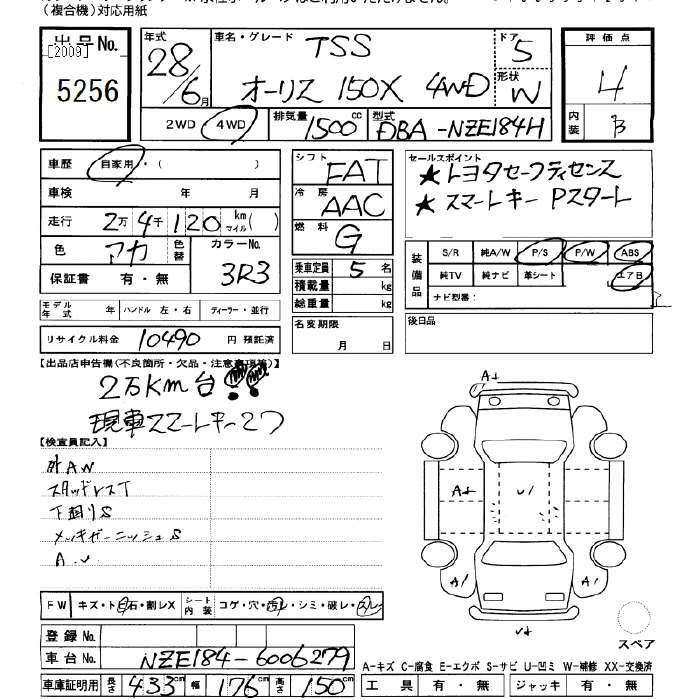 (複合機)対応用紙
出品No. [2009] 5256
年式 28/6月
車名・グレード TSS オーリス 150X 4WD
ドア 5
形状 W
2WD 4WD
排気量 1500cc
型式 DBA-NZE184H
評価点 4
内装 B
車歴 自家用・( )
車検 年 月
走行 2万4千120 km マイル( )
色 アカ 色替 カラーNo. 3R3
保証書 有・無
モデル年式 年 ハンドル 左・右 ディーラー・並行
リサイクル料金 10490 円 預託済
シフト FAT
冷房 AAC
燃料 G
乗車定員 5 名
積載量 kg
総重量 kg
名変期限 月 日
セールスポイント
★トヨタセーフティセンス
★スマートキー Pスタート
装備品 S/R 純A/W P/S P/W ABS
純TV 純ナビ 革シート エアB
ナビ型番:
後日品
【出品店申告欄(不良箇所・欠品・注意事項等)】
2万Km台!!
現車スマートキー2ケ
【検査員記入】
外AW
スタッドレスT
下廻りS
メッキガーニッシュS
A.U
A+
A+
U'
A'
A'
U+
FW キズ・ト石・割レX シート内装 コゲ・穴・汚レ・シミ・破レ・スレ
登録No.
車台No. NZE184-6006279
車庫証明用 長さ 433cm 幅 176cm 高さ 150cm
スペア
A-キズ C-腐食 E-エクボ S-サビ U-凹ミ W-補修 XX-交換済
工具 有・無 ジャッキ 有・無